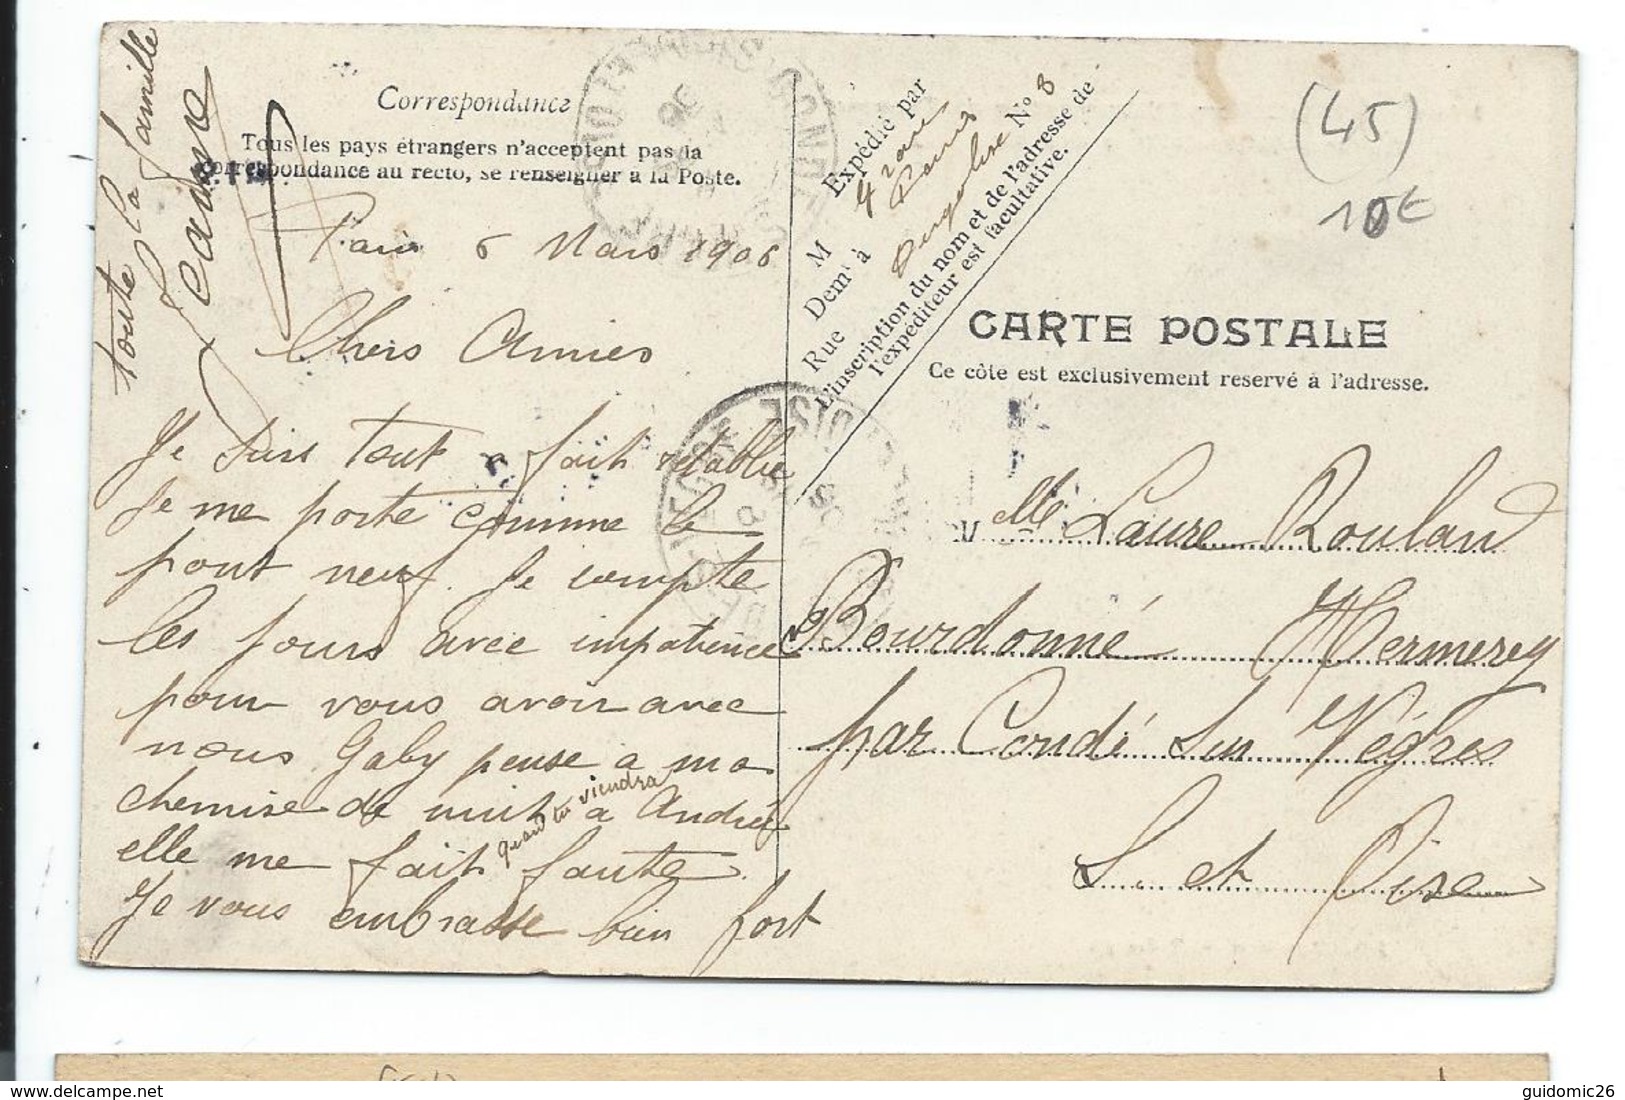 Correspondance
Tous les pays étrangers n'acceptent pas la
correspondance au recto, se renseigner à la Poste.
Paris 6 Mars 1906
Chers Amies
Je suis tout a fait retablie
Je me porte comme le
pont neuf. Je compte
les jours avec impatience
pour vous avoir avec
nous Gaby pense a ma
chemise de nuit a Andrée
quand tu viendra
elle me fait faute
Je vous embrasse bien fort
toute la famille
Jeanne
Expédié par
M
Demt à Paris
Rue N° 8
L'inscription du nom et de l'adresse de
l'expéditeur est facultative.
(45)
10€
CARTE POSTALE
Ce côte est exclusivement reservé à l'adresse.
Melle Laure Roulan
Bourdonné Hermerey
par Condé sur Végres
S. et Oise
guidomic26